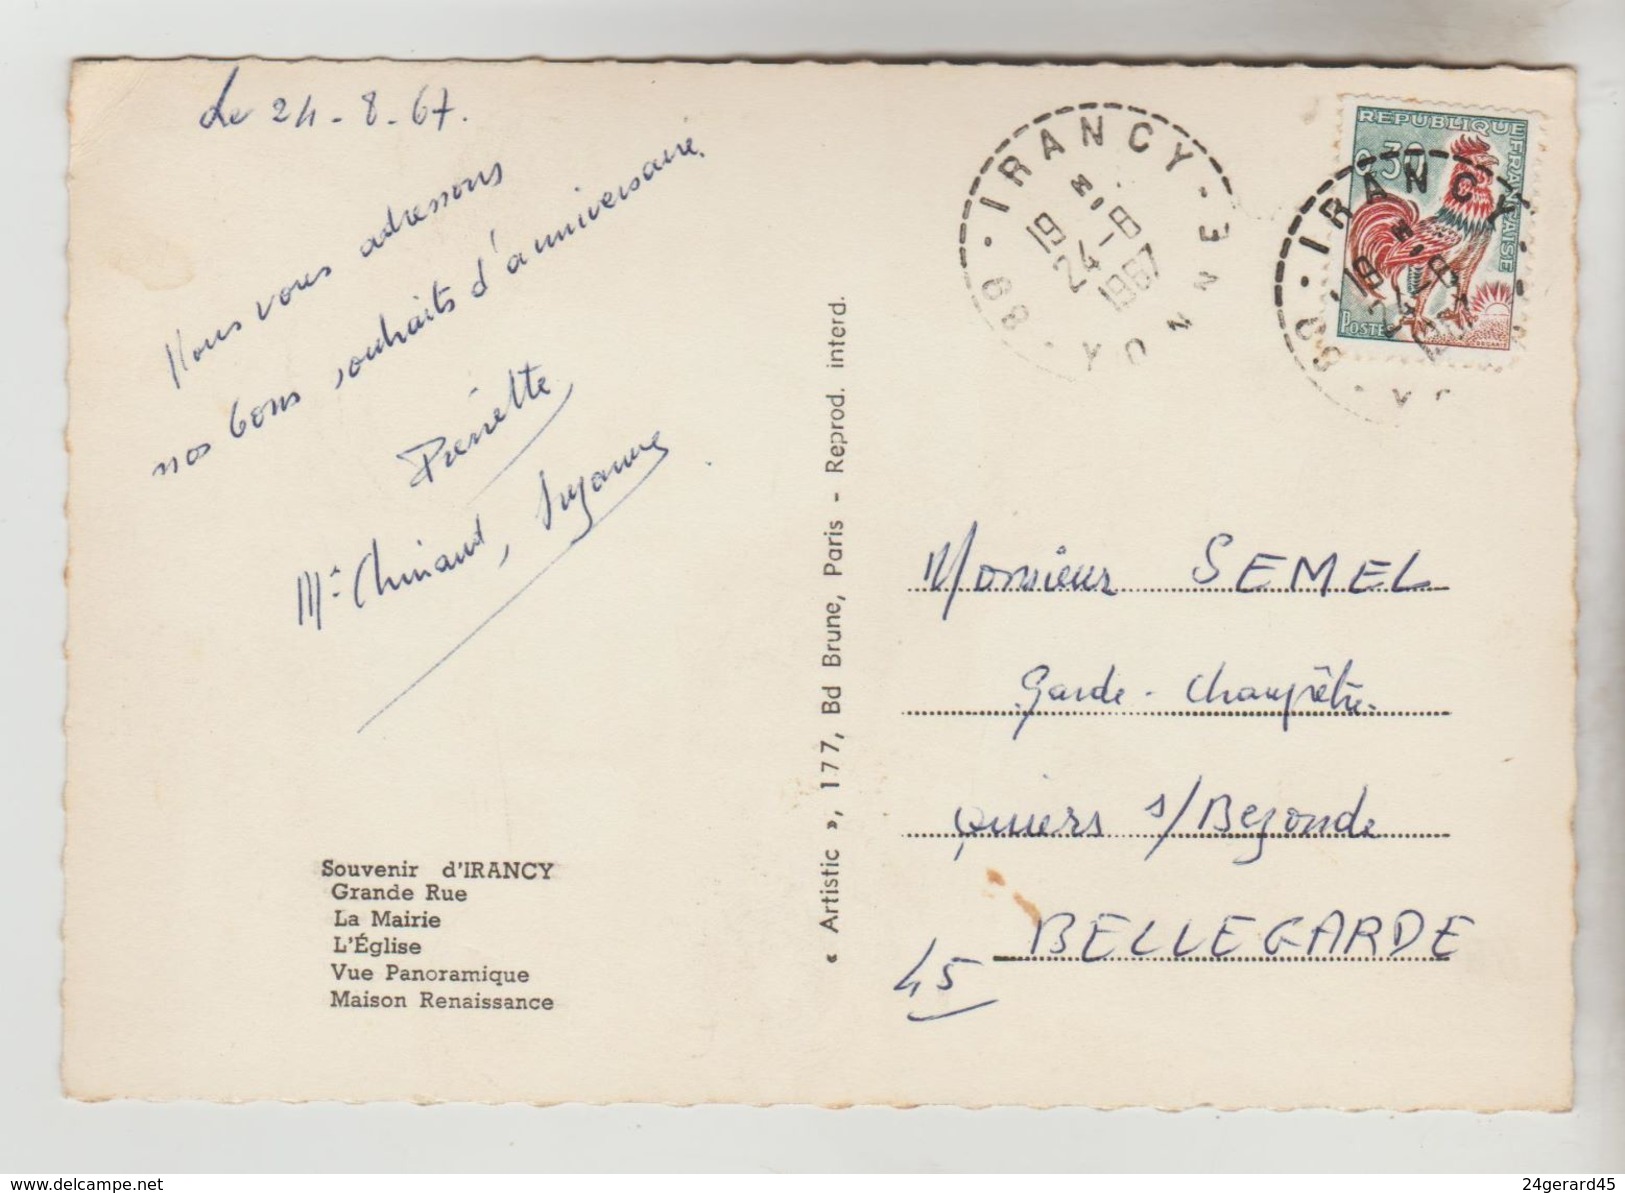 Le 24-8-67.
Nous vous adressons
nos bons souhaits d'anniversaire.
Pierrette
Suzanne
Souvenir d'IRANCY
Grande Rue
La Mairie
L'Église
Vue Panoramique
Maison Renaissance
« Artistic », 177, Bd Brune, Paris - Reprod. interd.
IRANCY
19 24-8
1967
89 · YONNE
REPUBLIQUE FRANÇAISE
0,30
POSTES
IRANCY
19 24-8
1967
89
Monsieur SEMEL
Garde-Champêtre
Quiers s/Bezonde
BELLEGARDE
45
www.delcampe.net
24gerard45